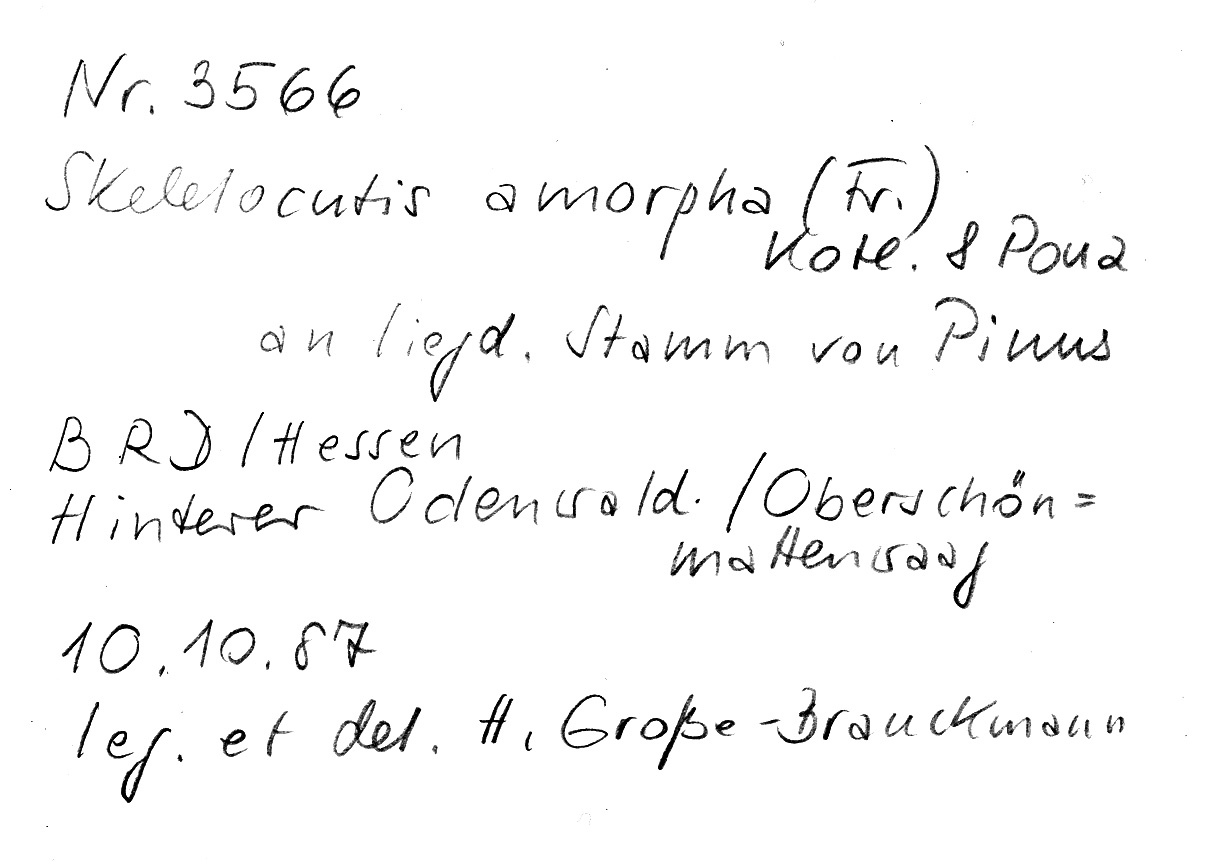 Nr. 3566
Skeletocutis amorpha (Fr.)
Kotl. & Pouz
an liegd. Stamm von Pinus
BRD/Hessen
Hinterer Odenwald./Oberschön=
mattenwaag
10.10.87
leg. et det. H. Große-Brauckmann